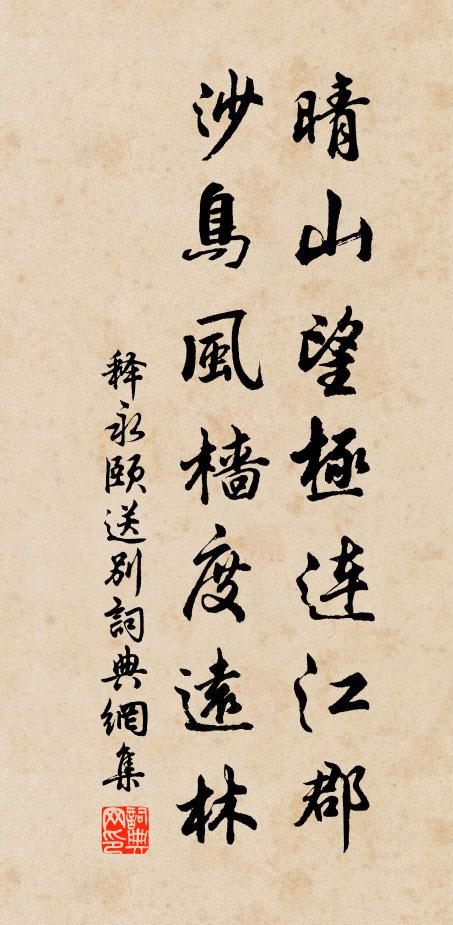 晴山望極連江郡
沙鳥風檣度遠林
释永頤送别詞典網集
詞典网印